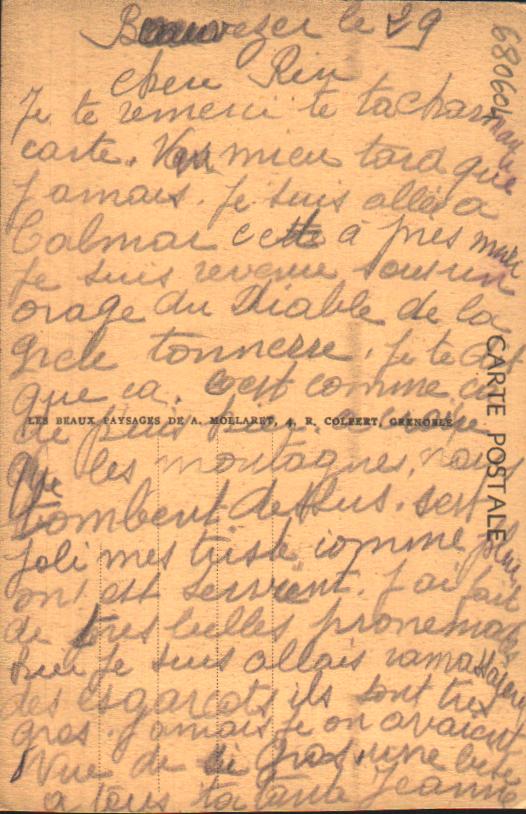 Beauvezer le 29
chere Rin
Je te remerci te ta charmante
carte. Vau mieu tard que
Jamais. Je suis allée a
Colmar cette à pres midi
Je suis revenue sous un
orage du Diable de la
grele tonnerre, Je te dit
que ca. c'est comme ca
de puis hier. a croire
LES BEAUX PAYSAGES DE A. MOLLARET, 4, R. COLBERT, GRENOBLE
que les montagnes, nous
tombent dessus. sest
joli mes triste comme
ont est servent. J'ai fait
de tres belles promenade
hier je suis allais ramasser
des esgargots ils sont tres
gros. Jamais Je on avaient
Vue de si gros. une bise
a tous ta tata Jeanne
CARTE POSTALE
680604